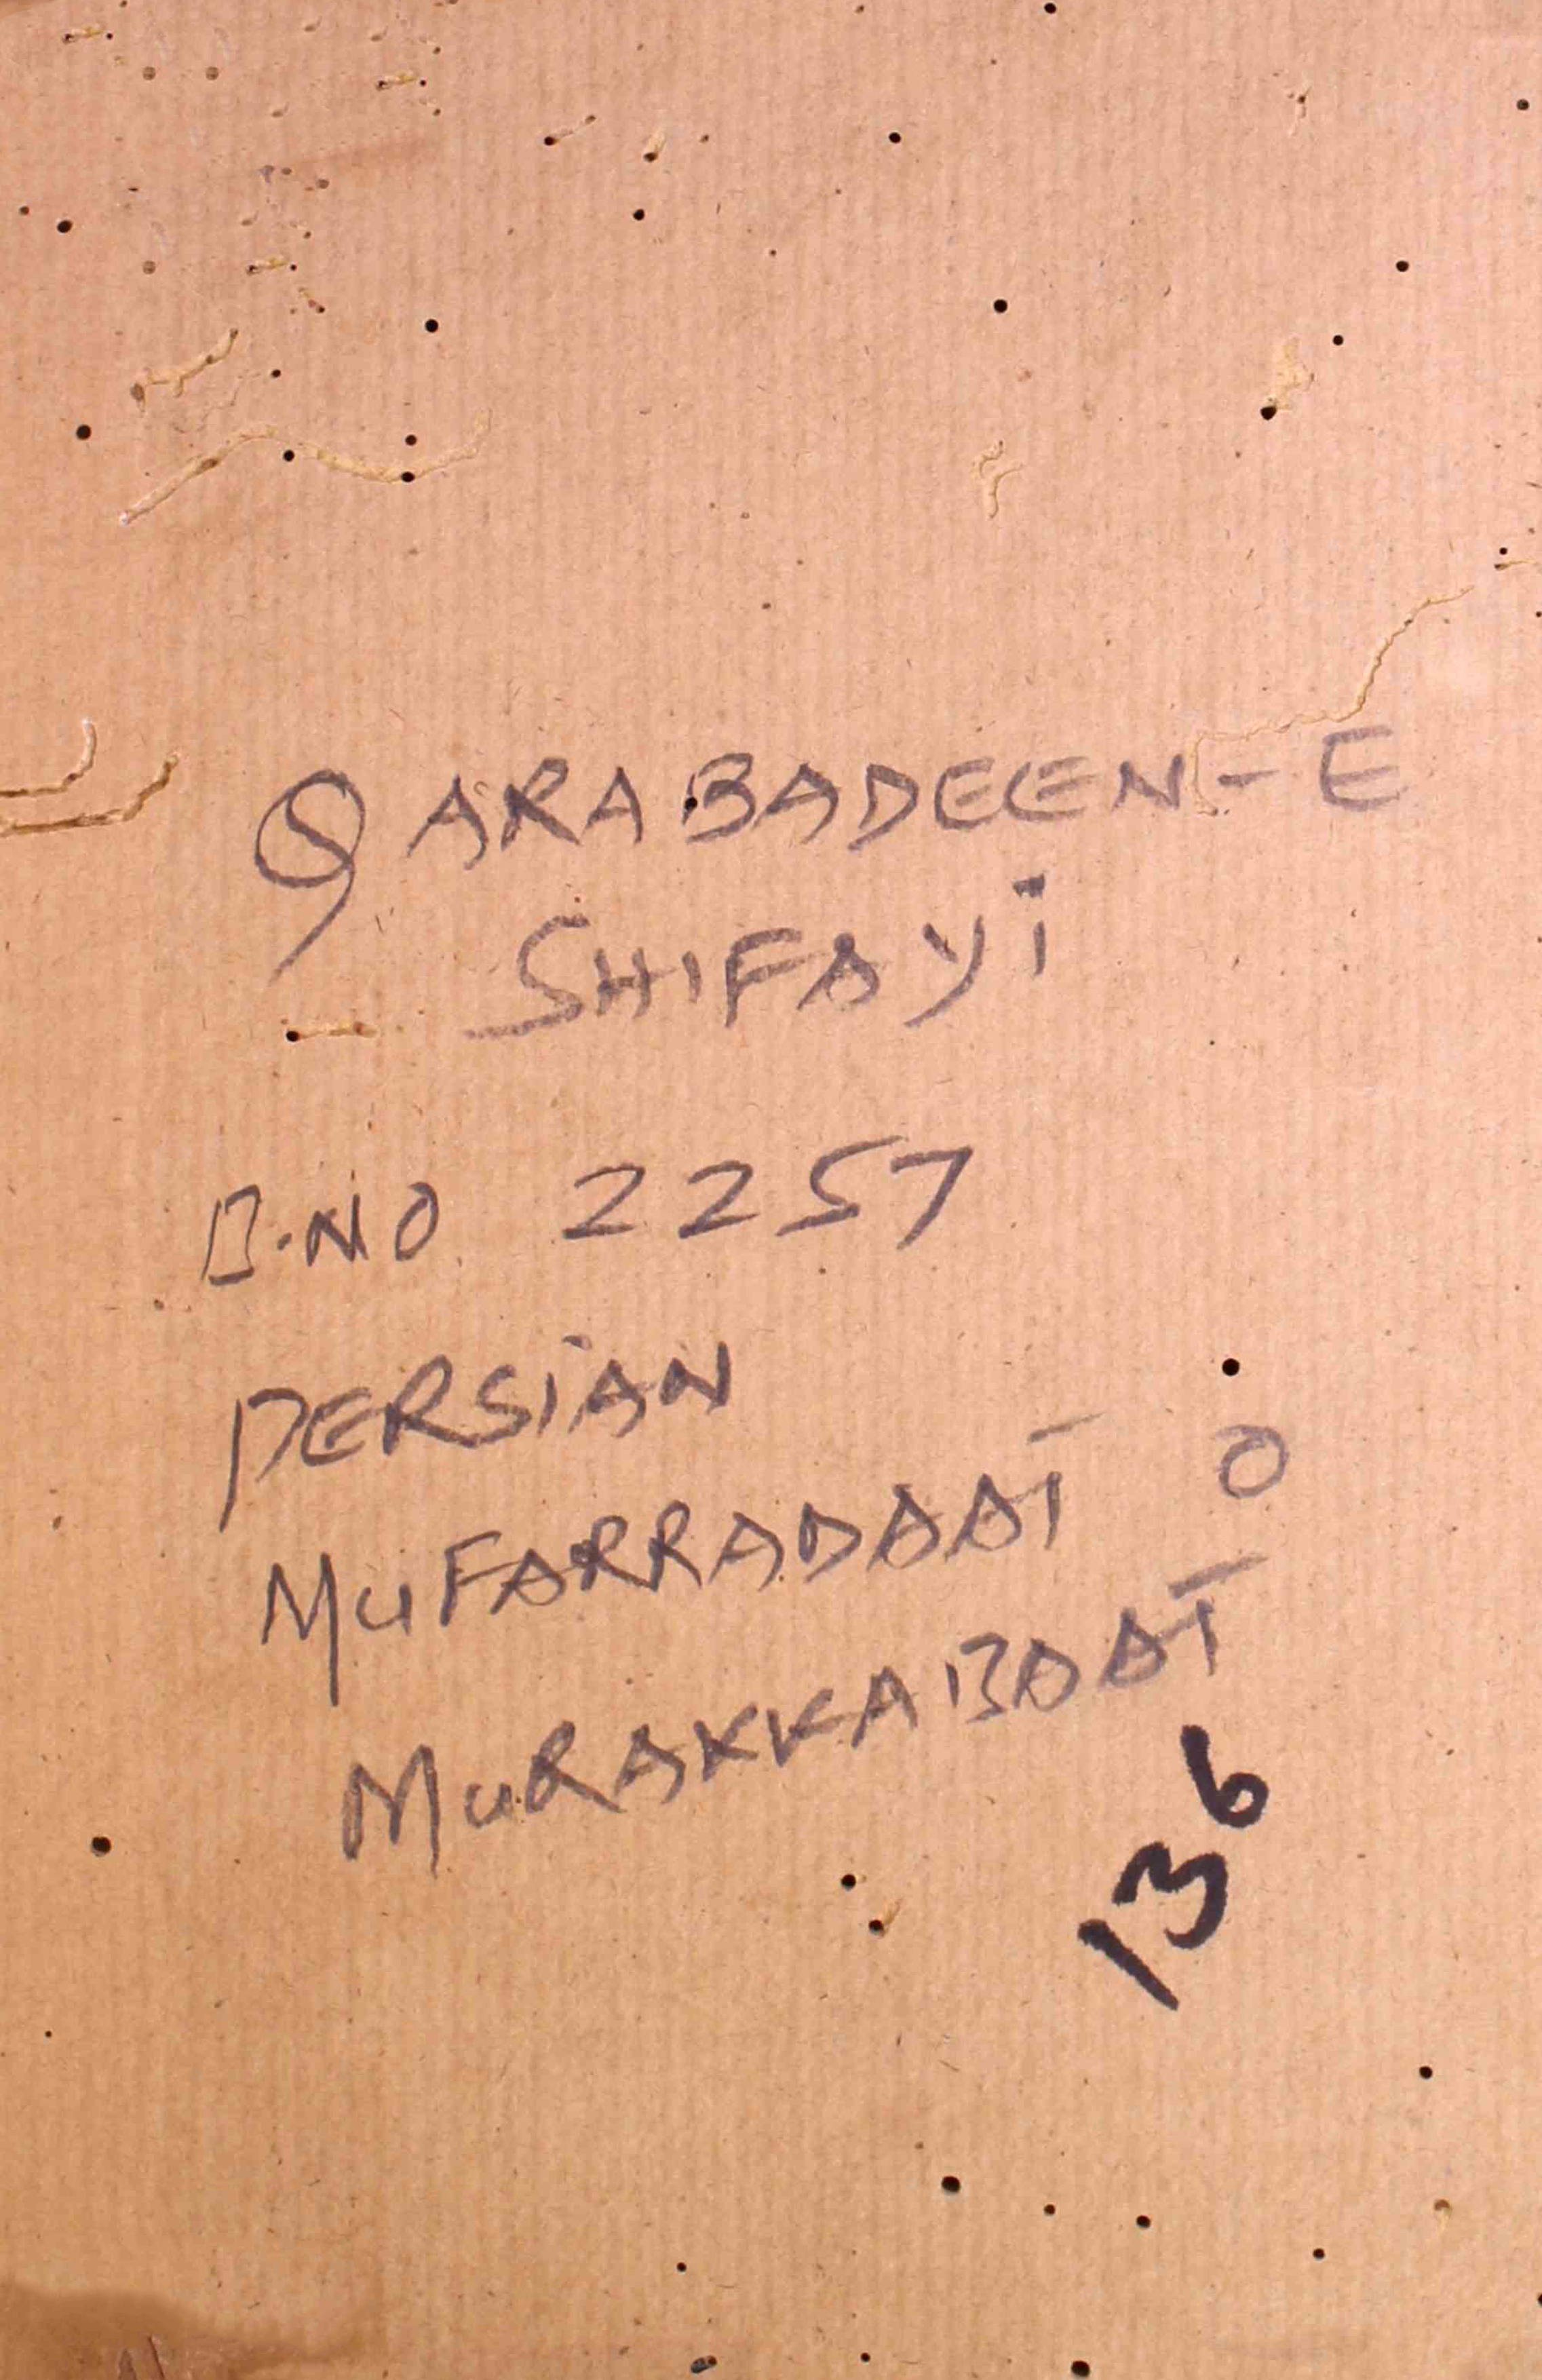 QARABADEEN-E
SHIFAYi
B.NO 2257
PERSiAN
MuFARRADAAT O
MuRAKKABAAT
136